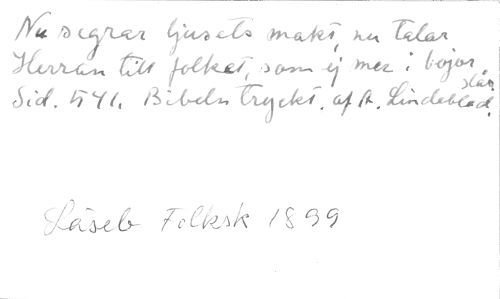 Nu segrar ljusets makt, nu talar
Herran till folket, som ej mer i bojor
slår.
Sid. 541. Bibeln tryckt. af A. Lindeblad.
Läseb Folksk 1899